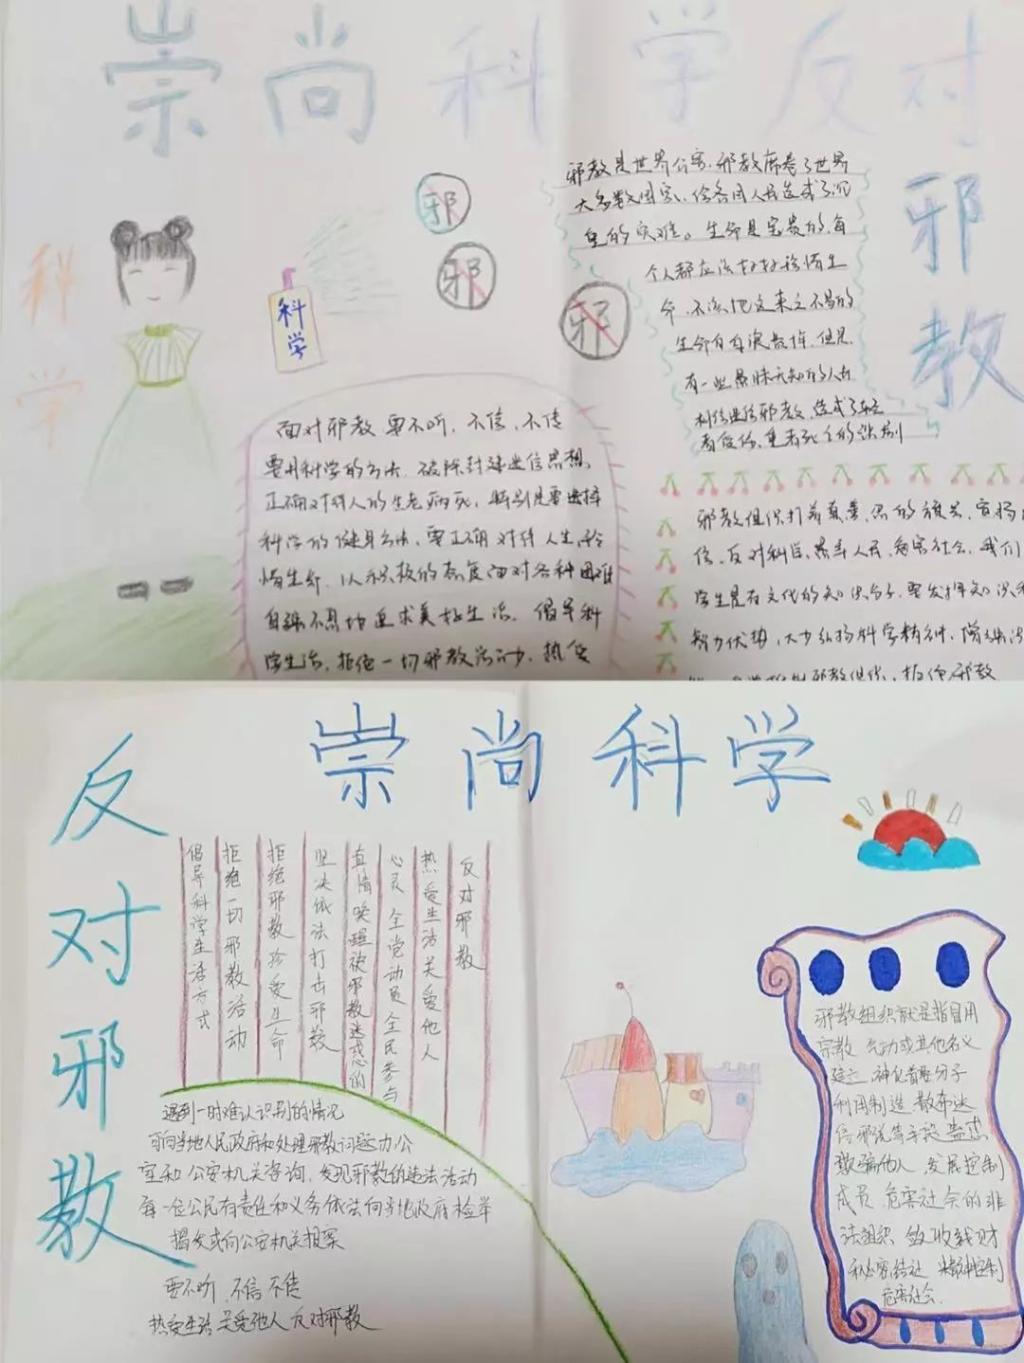 崇尚科学反对
邪教
科学
科学
邪
邪
邪
邪教是世界公害,邪教席卷了世界
大多数国家,给各国人民造成了沉
重的灾难。生命是宝贵的,每
个人都应该好好珍惜生
命,不该把这来之不易的
生命白白浪费掉,但是
有一些愚昧无知的人却
面对邪教要不听,不信,不传
要用科学的方法,破除封建迷信思想,
正确对待人的生老病死,特别是要选择
科学的健身方法,要正确对待人生,珍
惜生命,以积极的态度面对各种困难
自强不息地追求美好生活,倡导科
学生活,拒绝一切邪教活动,热爱
信,反对科学,愚弄人民,危害社会,我们
学生是有文化的知识分子,要发挥知识和
智力优势,大力弘扬科学精神,增强识
崇尚科学
反对邪教
反对邪教
热爱生活关爱他人
心灵全党动员全民参与
真情唤醒被邪教迷惑的
坚决依法打击邪教
拒绝邪教珍爱生命
拒绝一切邪教活动
倡导科学生活方式
遇到一时难认识别的情况
可向当地人民政府和处理邪教问题办公
室和公安机关咨询,发现邪教的违法活动
每一位公民有责任和义务依法向当地政府检举
揭发或向公安机关报案
要不听 不信 不传
热爱生活 关爱他人 反对邪教
邪教组织就是指冒用
宗教 气功或其他名义
建立 神化首要分子
利用制造 散布迷
信邪说等手段 蛊惑
欺骗他人 发展控制
成员 危害社会的非
法组织 敛收钱财
秘密结社 精神控制
危害社会